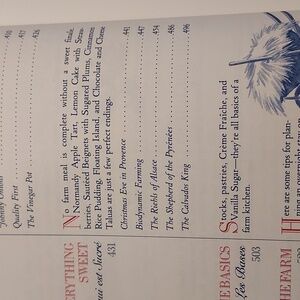 410
Quality First 417
The Vinegar Pot 426
No farm meal is complete without a sweet finale.
Normandy Apple Tart, Lemon Cake with Straw-
berries, Sautéed Beignets with Sugared Plums, Cinnamon
Rice Pudding, Floating Island, and Chocolate and Cherry
Taluas are just a few perfect endings.
Christmas Eve in Provence 441
Biodynamic Farming 447
The Riehls of Alsace 454
The Shepherd of the Pyrénées 486
The Calvados King 496
Stocks, pastries, Crème Fraîche, and
Vanilla Sugar—they're all basics of a
farm kitchen.
Here are some tips for plan-
SWEET
qui est Sucré
431
THE BASICS
Les Bases
503
THE FARM